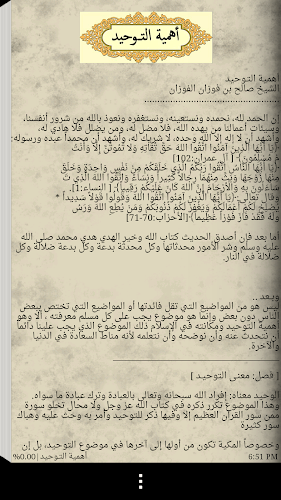 أهمية التوحيد
أهمية التوحيد
الشيخ صالح بن فوزان الفوزان
.................................................
إن الحمد لله، نحمده ونستعينه، ونستغفره ونعوذ بالله من شرور أنفسنا،
وسيئات أعمالنا من يهده الله، فلا مضل له، ومن يضلل فلا هادي له،
وأشهد أن لا إله إلا الله وحده، لا شريك له، وأشهد أن محمدا عبده ورسوله:
{يَا أَيُّهَا الَّذِينَ آمَنُوا اتَّقُوا اللَّهَ حَقَّ تُقَاتِهِ وَلَا تَمُوتُنَّ إِلَّا وَأَنْتُ
مْ مُسْلِمُونَ} [ آل عمران:102]
{يَا أَيُّهَا النَّاسُ اتَّقُوا رَبَّكُمُ الَّذِي خَلَقَكُمْ مِنْ نَفْسٍ وَاحِدَةٍ وَخَلَقَ
مِنْهَا زَوْجَهَا وَبَثَّ مِنْهُمَا رِجَالًا كَثِيرًا وَنِسَاءً وَاتَّقُوا اللَّهَ الَّذِي تَ
سَاءَلُونَ بِهِ وَالْأَرْحَامَ إِنَّ اللَّهَ كَانَ عَلَيْكُمْ رَقِيبًا} [ النساء:1].
وقال تعالى {يَا أَيُّهَا الَّذِينَ آمَنُوا اتَّقُوا اللَّهَ وَقُولُوا قَوْلًا سَدِيدًا *
يُصْلِحْ لَكُمْ أَعْمَالَكُمْ وَيَغْفِرْ لَكُمْ ذُنُوبَكُمْ وَمَنْ يُطِعِ اللَّهَ وَرَسُ
ولَهُ فَقَدْ فَازَ فَوْزًا عَظِيمًا} [الأحزاب:70-71]
أما بعد فإن أصدق الحديث كتاب الله وخير الهدي هدي محمد صلى الله
عليه وسلم وشر الأمور محدثاتها وكل محدثة بدعة وكل بدعة ضلالة وكل
ضلالة في النار.
وبعد...
ليس هو من المواضيع التي تقل فائدتها أو المواضيع التي تختص ببعض
الناس دون بعض وإنما هو موضوع يجب على كل مسلم معرفته ، ألا وهو
أهمية التوحيد ومكانته في الإسلام ذلك الموضوع الذي يجب علينا دائما
أن نتحدث عنه وأن نوضحه وأن نتعلمه لأنه مناط السعادة في الدنيا
والآخرة.
[ فصل: معنى التوحيد ]
التوحيد معناه: إفراد الله سبحانه وتعالى بالعبادة وترك عبادة ما سواه.
وهذا الموضوع تكرر ذكره في كتاب الله عز وجل ولا محال تخلو سورة
من سور القرآن العظيم إلا وفيها ذكر للتوحيد وأمر به وحث عليه وهناك
سور كثيرة
وخصوصا المكية تكون من أولها إلى آخرها في موضوع التوحيد، بل إن
%0.00|أهمية التوحيد 6:51 PM